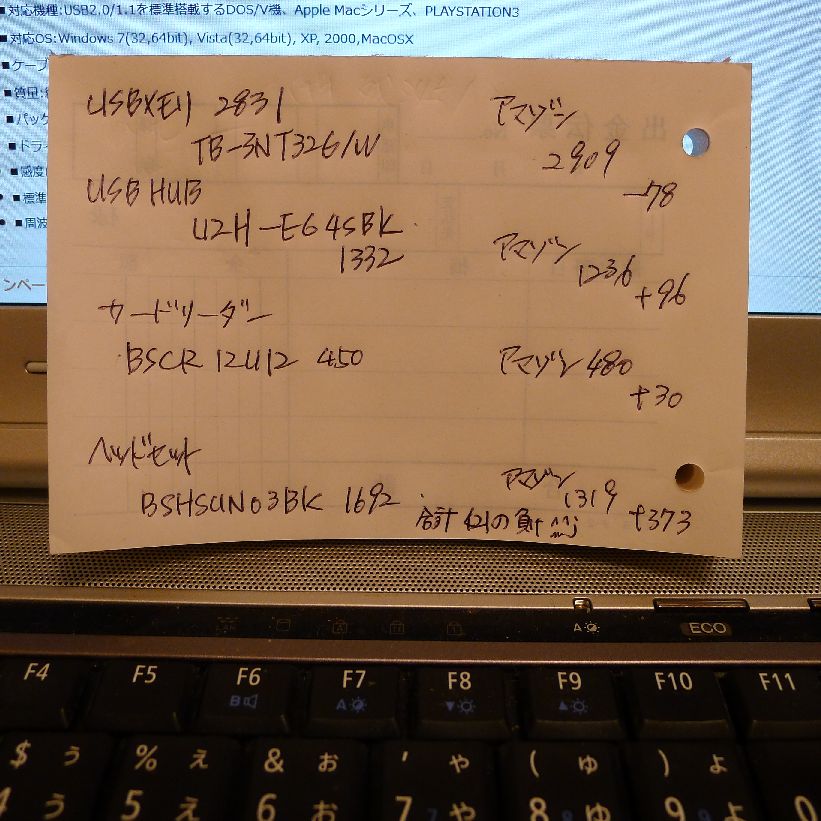 ■対応機種:USB2.0/1.1を標準搭載するDOS/V機、Apple Macシリーズ、PLAYSTATION3
■対応OS:Windows 7(32,64bit), Vista(32,64bit), XP, 2000,MacOSX
■ケーブ
■質量:
■パッケ
■ドライ
■感度
■標準
■周波
ンペー
USBメモリ 2831 アマゾン
TB-3NT326/W 2909
-78
USB HUB
U2H-E64SBK アマゾン
1332 1236
+96
カードリーダー
BSCR12U12 450 アマゾン 480
+30
ヘッドセット アマゾン
BSHSUN03BK 1692 1319
合計 421の負け +373
A ECO
F4 F5 F6 F7 F8 F9 F10 F11
B A
$ う % え & お ' や ( ゆ ) よ
4 う 5 え 6 お 7 や 8 ゆ 9 よ 0